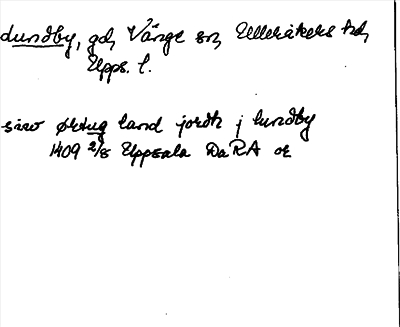 Lundby, gd, Vänge sn, Ulleråkers hd,
Upps. l.
siw ørtug land jordh j lundby
1409 2/8 Uppsala DaRA or